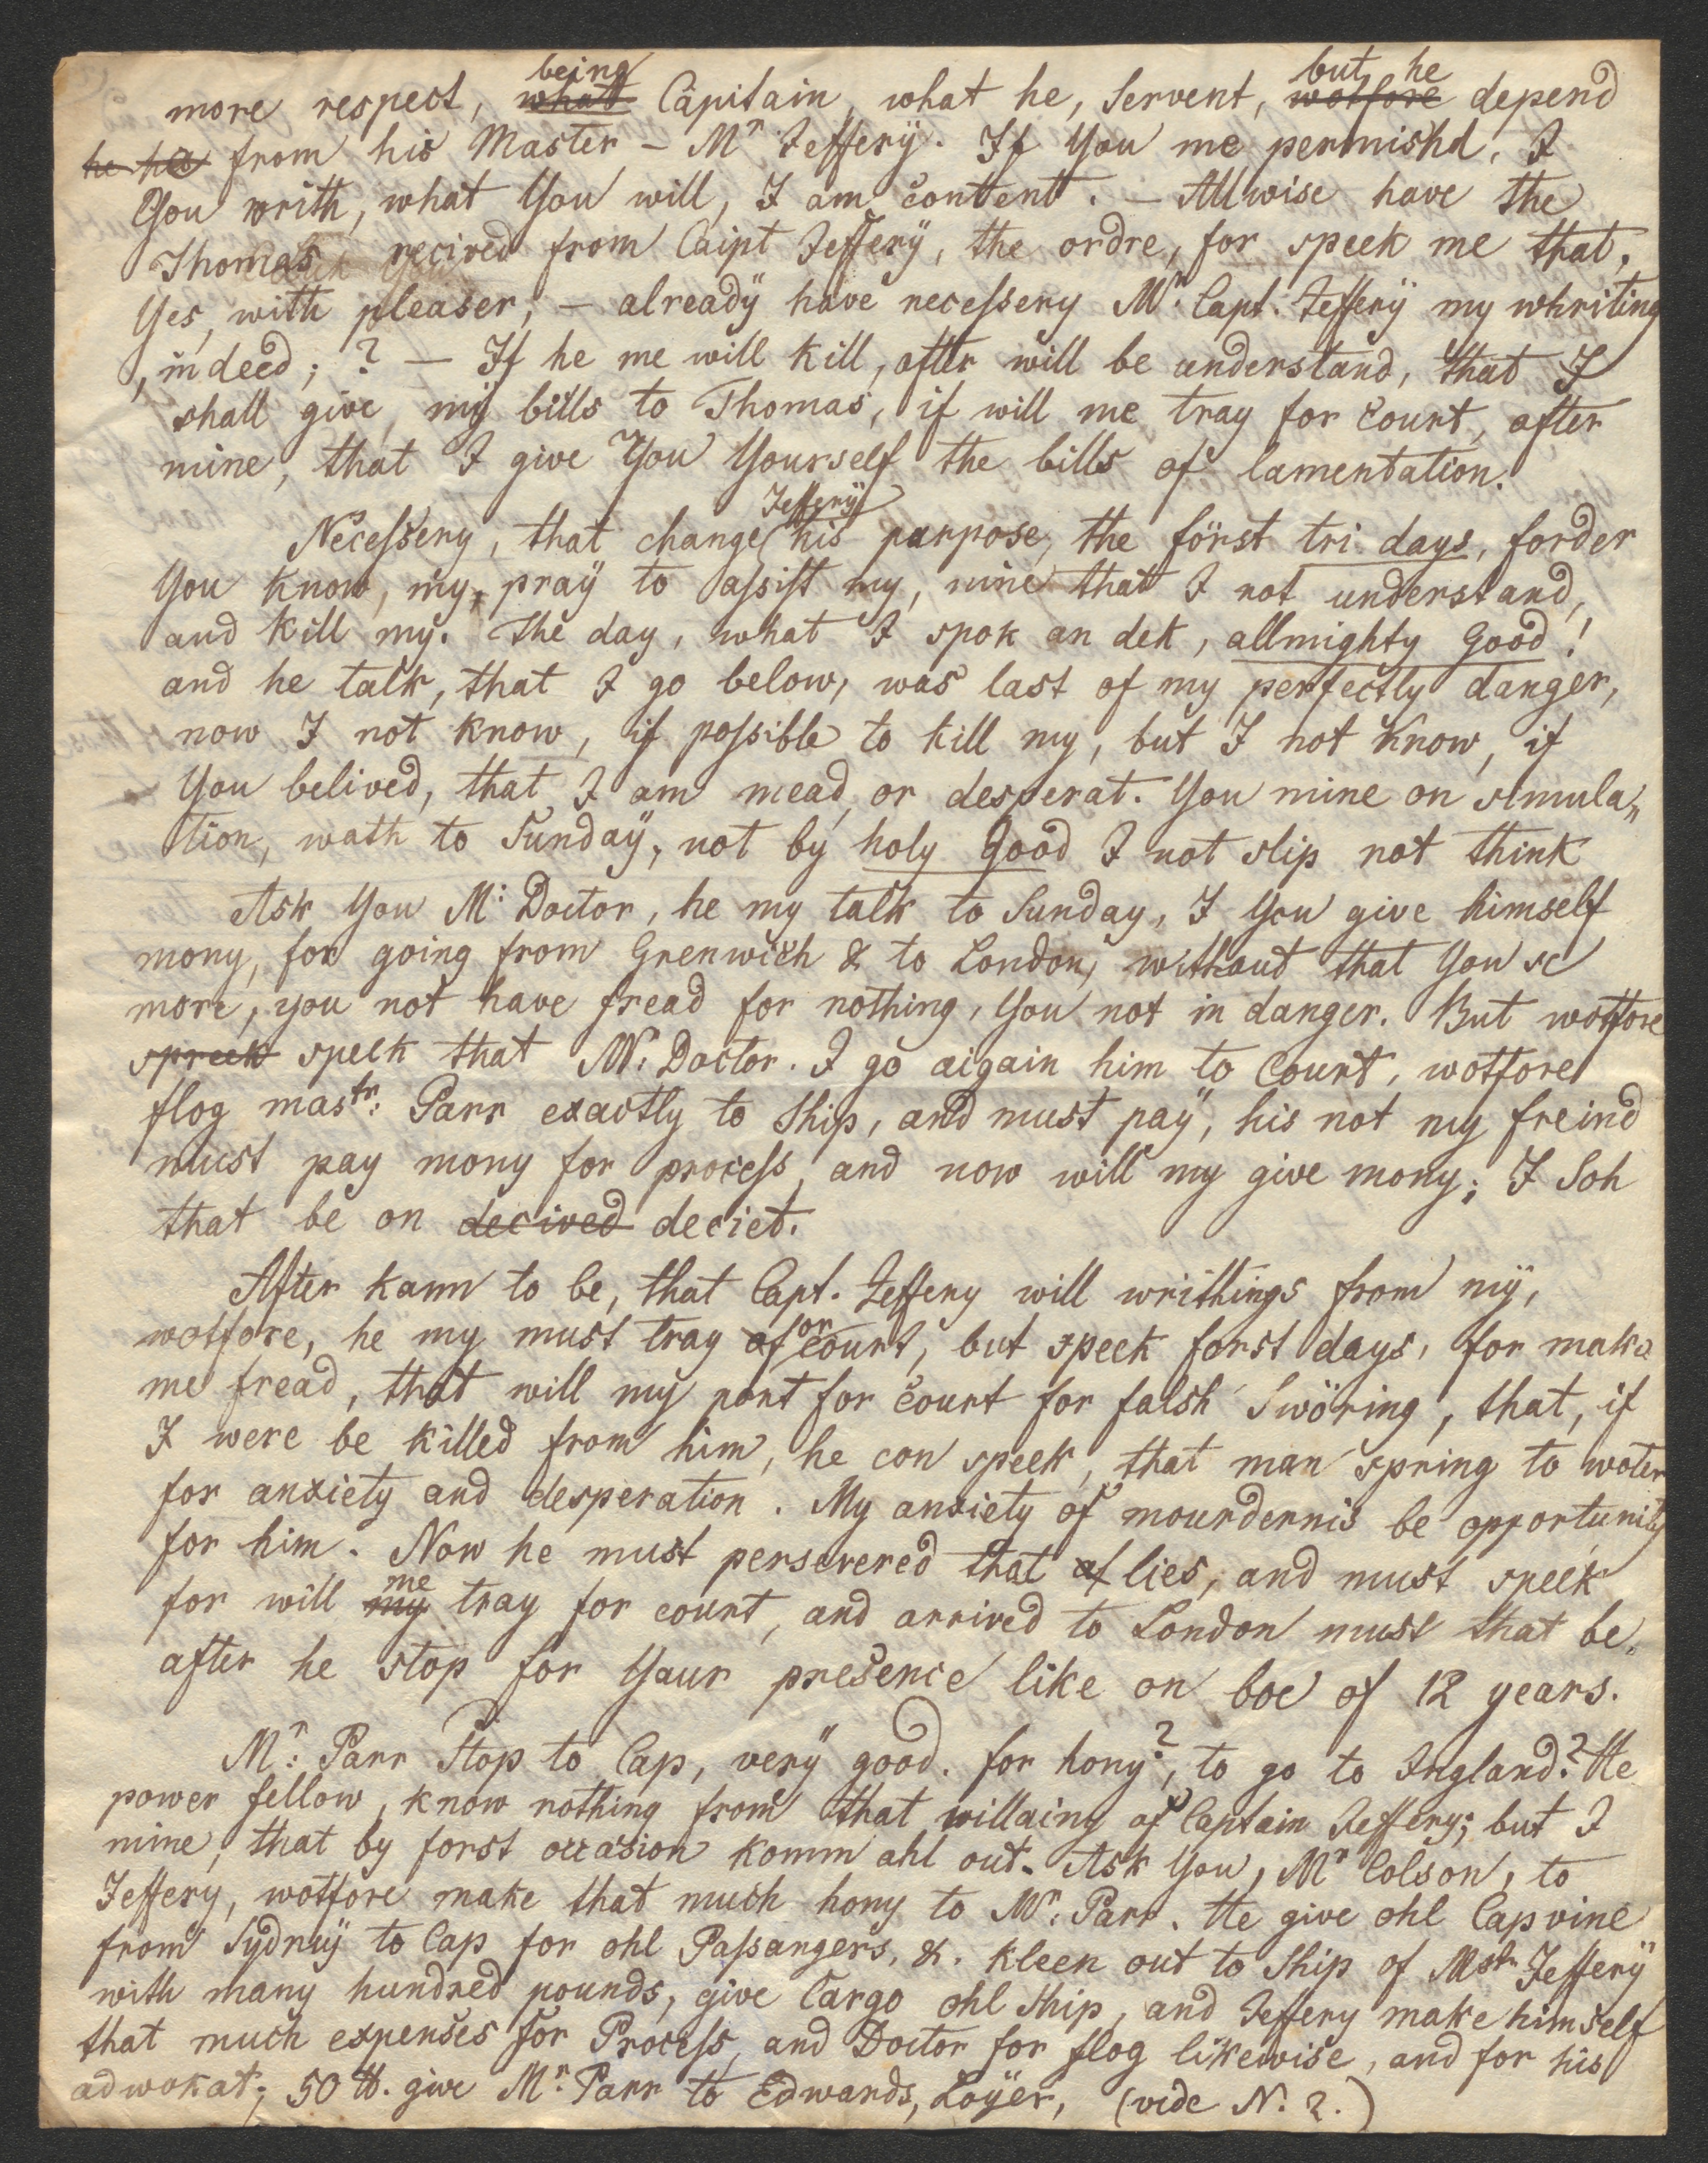 more respect, ~~what~~ being Capitain, what he, Servent, ~~wotfore~~ but he depend
~~he ha~~ from his Master – Mr Jefferÿ. If You me permishd, I
You writh, what You will, I am content. – Allwise have the
Thomas recived from Caipt Jefferÿ, the ordre, for speek me that,
Yes, with pleaser; – alreadÿ have necessery Mr. Capt. Jefferÿ my whriting
, indeed; ? – If he me will kill, after will be understand, that I
shall give, mÿ bills to Thomas, if will me tray for Court, after
mine, that I give You Yourself the bills of lamentation.
Necessery, that change Jefferÿ his purpose, the först tri days, forder
You know, my, praÿ to assist my, mine that I not understand,
and kill my. The day, what I spok an dek, allmighty Good!
and he talk, that I go below, was last of my perfectly danger,
now I not know, if possible to kill my, but I not know, if
You belived, that I am mead, or desperat. You mine on simula„
tion, wath to Sundaÿ, not by holy Good I not slip not think
Ask You M: Doctor, he my talk to Sunday, I You give himself
mony, for going from Grenwich & to London, without that You se
more, you not have fread for nothing, You not in danger. But wotfore
~~spreek~~ speek that M: Doctor. I go aigain him to Court, wotfore
flog mastr: Parr exactly to Ship, and must paÿ, his not my freind
must pay mony for process, and now will my give mony; I Soh
that be on ~~decived~~ deciet.
After kann to be, that Capt. Jeffery will writhings from mÿ,
wotfore, he my must tray ~~of~~ or court, but speek forst days, for make
me fread, that will my pont for Court for falsh Swöring, that, if
I were be killed from him, he con speek, that man spring to woter
for anxiety and desperation. My anxiety of mourdernis be opportunity
for him. Now he must persevered that ~~of~~ lies, and must speek
for will ~~my~~ me tray for court, and arrived to London must that be„
after he stop for Yaur presence like on boe of 12 years.
Mr: Parr Stop to Cap, verÿ good. for hony?, to go to Ingland? He
power fellow, know nothing from that willainy of Captain Jeffery; but I
mine, that by forst occasion komm ahl out. Ask You, Mr Colson, to
Jeffery, wotfore make that much hony to Mr: Parr. He give ohl Cap vine
from Sydnÿ to Cap for ohl Passangers, &. kleen out to Ship of Mstr Jefferÿ
with many hundred pounds, give Cargo ohl Ship, and Jeffery make himself
that much expenses for Process, and Doctor for flog likewise, and for his
adwokat; 50 ℔. give Mr. Parr to Edwards, Loÿer, (vide N. 2.)